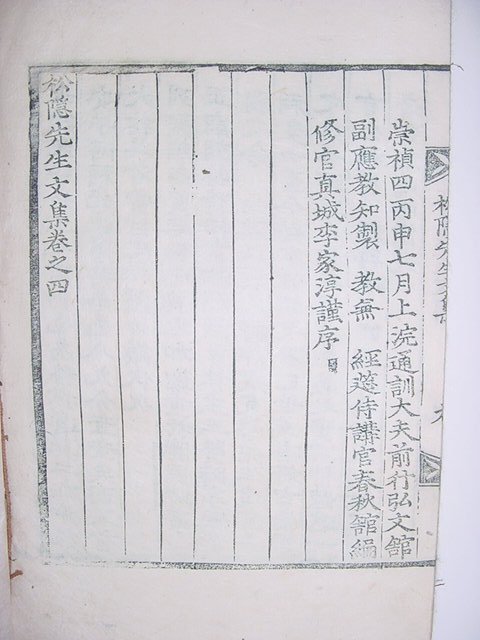 松隱先生文集
崇禎四丙申七月上浣通訓大夫前行弘文館
副應教知製 教兼 經筵侍講官春秋館編
修官真城李家淳謹序
松隱先生文集卷之四